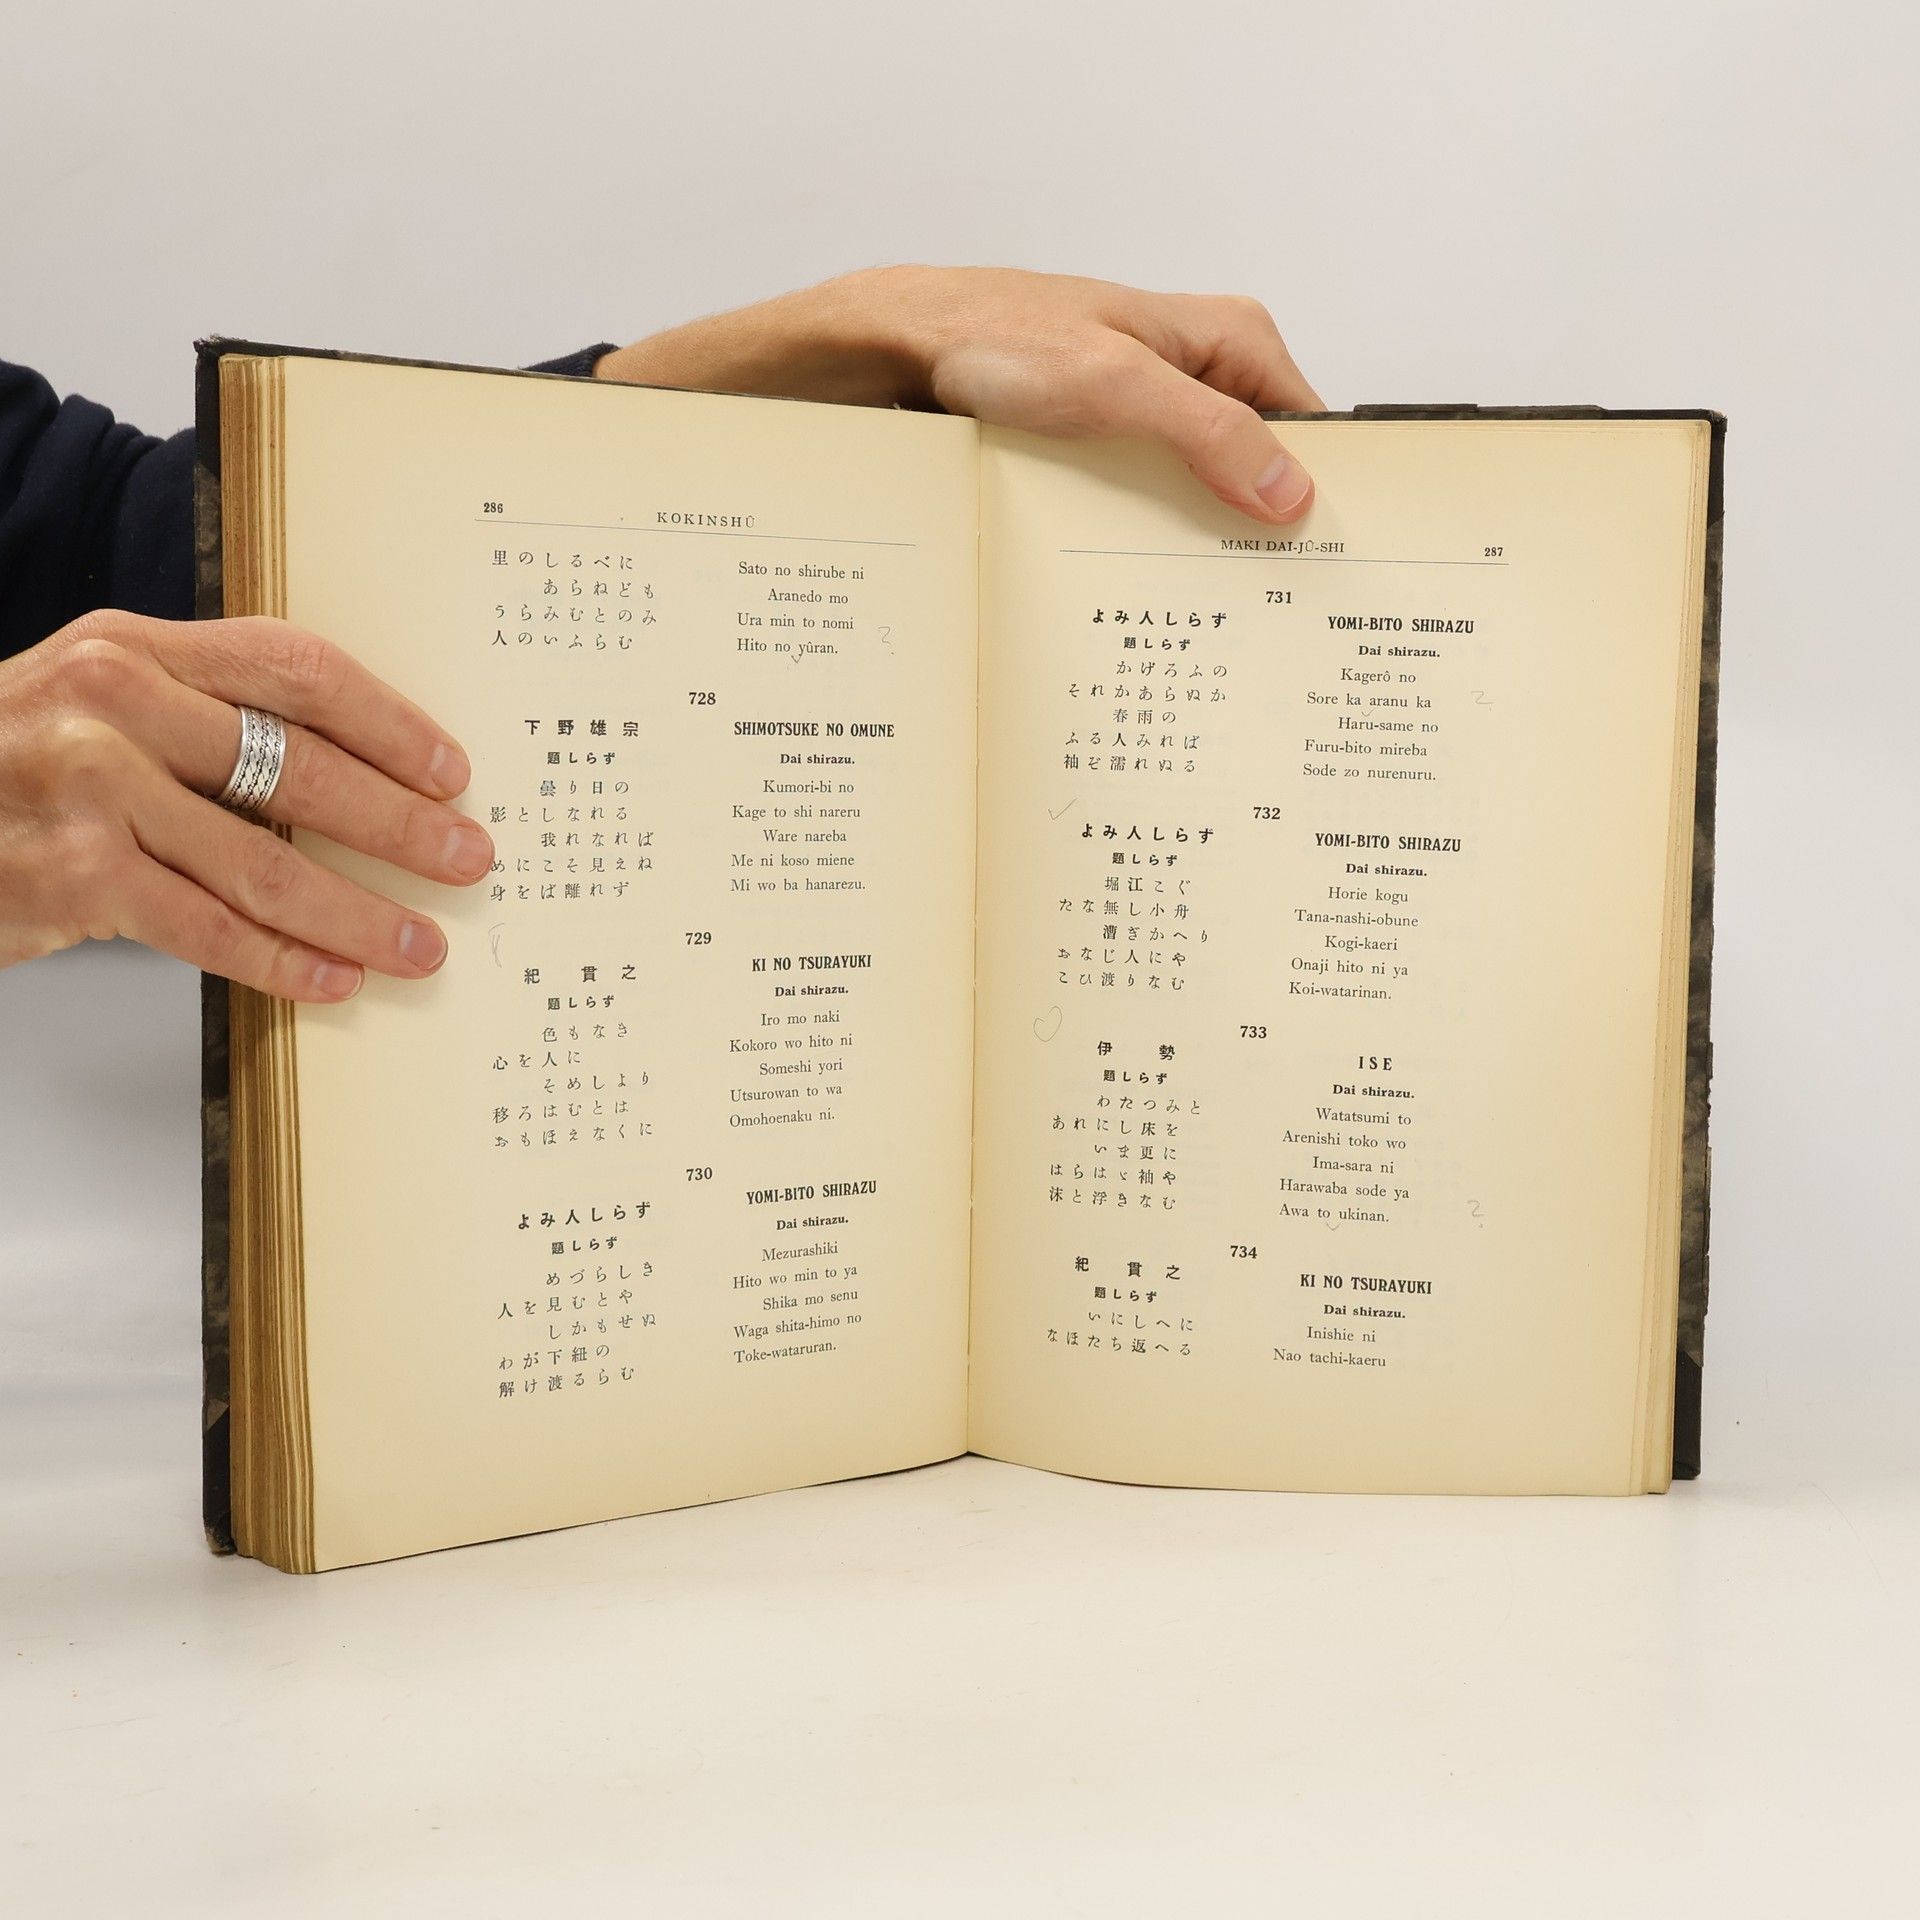 286
KOKINSHÛ
里のしるべに
あらねども
うらみむとのみ
人のいふらむ
Sato no shirube ni
Aranedo mo
Ura min to nomi
Hito no yûran.
?
728
下野雄宗
題しらず
曇り日の
影としなれる
我れなれば
めにこそ見えね
身をば離れず
SHIMOTSUKE NO OMUNE
Dai shirazu.
Kumori-bi no
Kage to shi nareru
Ware nareba
Me ni koso miene
Mi wo ba hanarezu.
729
紀貫之
題しらず
色もなき
心を人に
そめしより
移ろはむとは
おもほえなくに
KI NO TSURAYUKI
Dai shirazu.
Iro mo naki
Kokoro wo hito ni
Someshi yori
Utsurowan to wa
Omohoenaku ni.
730
よみ人しらず
題しらず
めづらしき
人を見むとや
しかもせぬ
わが下紐の
解け渡るらむ
YOMI-BITO SHIRAZU
Dai shirazu.
Mezurashiki
Hito wo min to ya
Shika mo senu
Waga shita-himo no
Toke-wataruran.
MAKI DAI-JÛ-SHI
287
731
よみ人しらず
題しらず
かげろふの
それかあらぬか
春雨の
ふる人みれば
袖ぞ濡れぬる
YOMI-BITO SHIRAZU
Dai shirazu.
Kagerô no
Sore ka aranu ka
Haru-same no
Furu-bito mireba
Sode zo nurenuru.
?
732
よみ人しらず
題しらず
堀江こぐ
たな無し小舟
漕ぎかへり
おなじ人にや
こひ渡りなむ
YOMI-BITO SHIRAZU
Dai shirazu.
Horie kogu
Tana-nashi-obune
Kogi-kaeri
Onaji hito ni ya
Koi-watarinan.
733
伊勢
題しらず
わたつみと
あれにし床を
いま更に
はらはゞ袖や
沫と浮きなむ
ISE
Dai shirazu.
Watatsumi to
Arenishi toko wo
Ima-sara ni
Harawaba sode ya
Awa to ukinan.
?
734
紀貫之
題しらず
いにしへに
なほたち返へる
KI NO TSURAYUKI
Dai shirazu.
Inishie ni
Nao tachi-kaeru